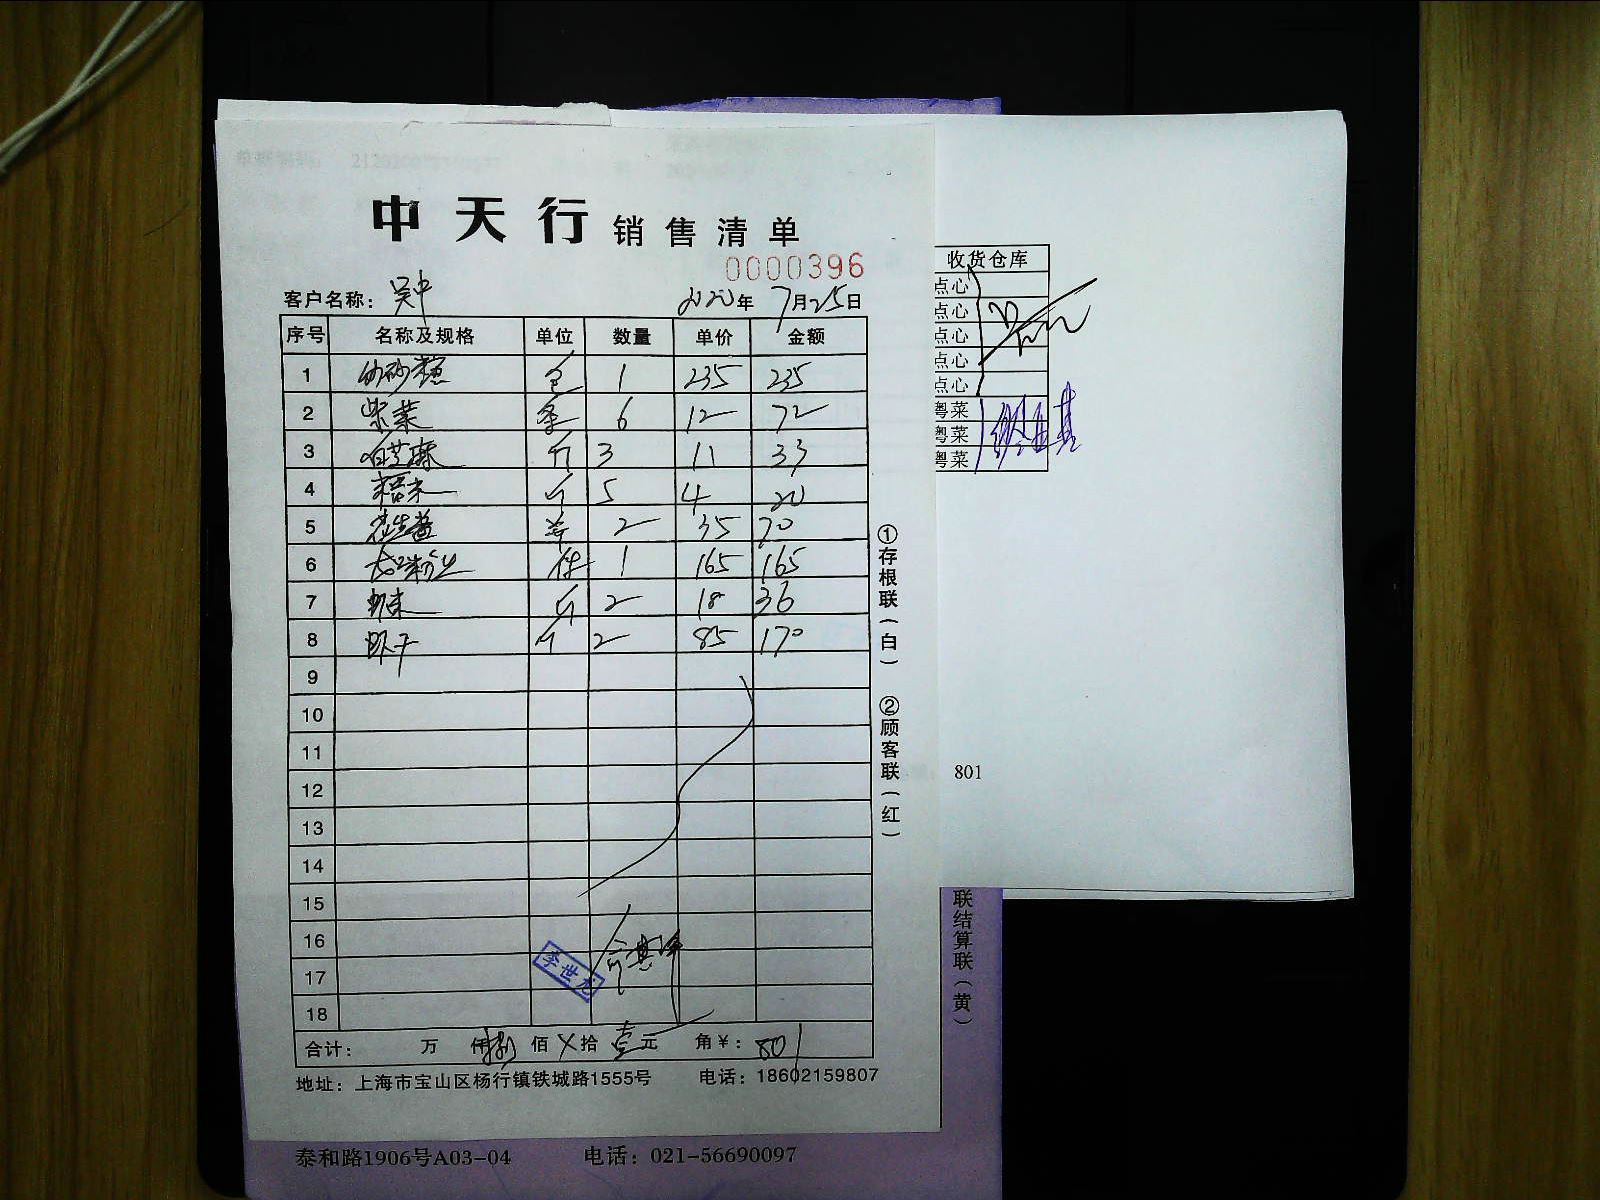 中天行 销售清单
0000396
客户名称： 吴中 2020年 7月25日
序号 名称及规格 单位 数量 单价 金额
1 幼砂糖 包 1 235 235
2 紫菜 6 12 72
3 白芝麻 斤 3 11 33
4 斤 5 4 20
5 花生酱 2 35 70
6 粉丝 件 1 165 165
7 虾米 斤 2 18 36
8 虾干 斤 2 85 170
9
10
11
12
13
14
15
16
17
18
李世龙
合计： 万 仟 捌 佰 拾 壹 元 角 ¥： 801
地址：上海市宝山区杨行镇铁城路1555号 电话：18602159807
①存根联（白） ②顾客联（红）
收货仓库
点心
点心
点心
点心
点心
粤菜
粤菜
粤菜
801
联结算联（黄）
泰和路1906号A03-04 电话：021-56690097